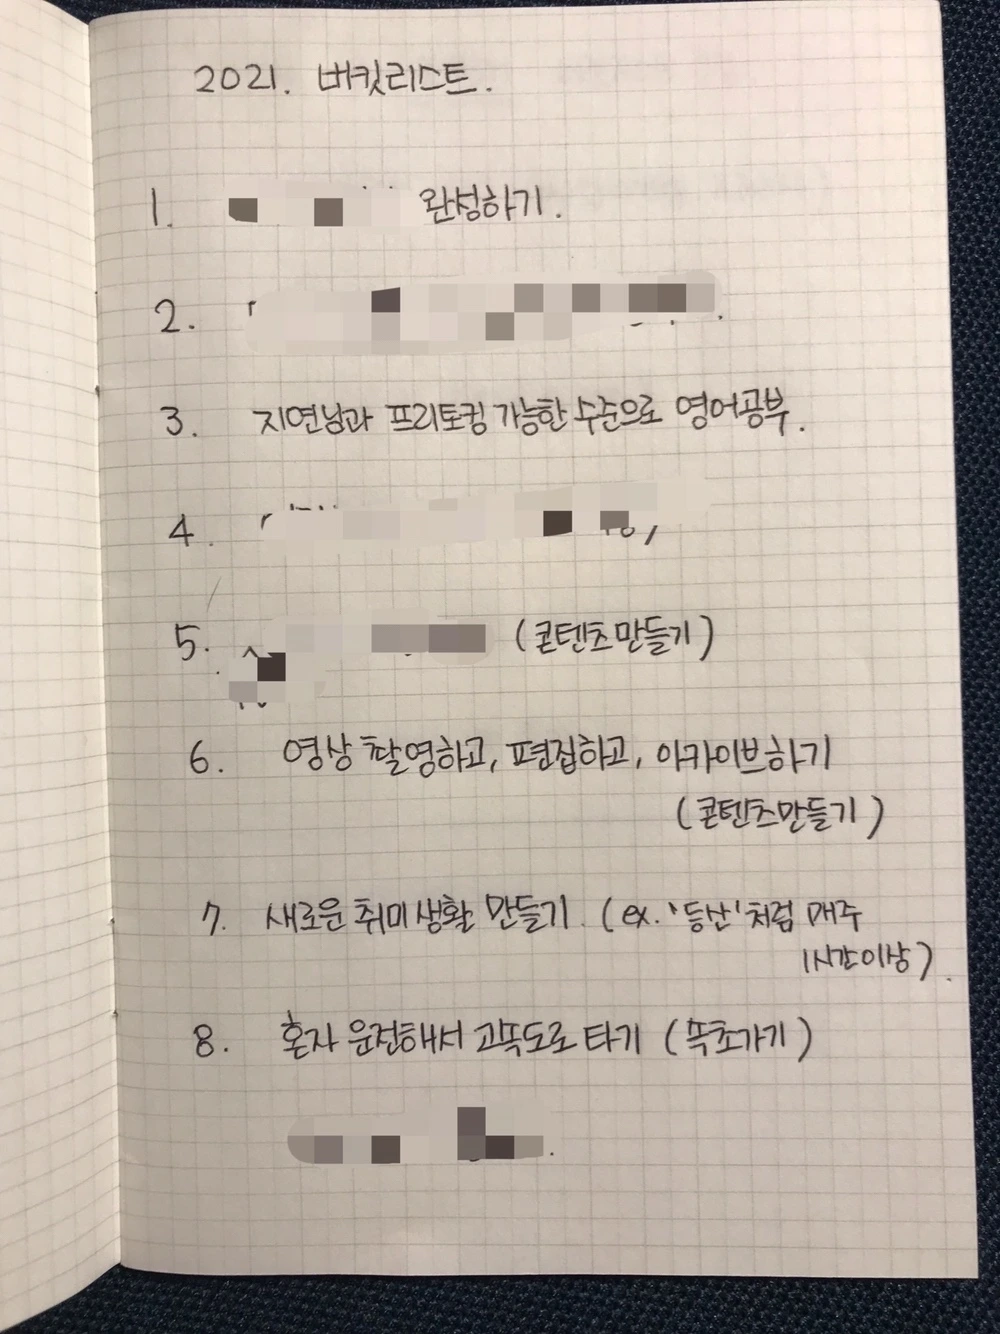 2021. 버킷리스트.
1. 완성하기.
2.
3. 지연님과 프리토킹 가능한 수준으로 영어공부.
4.
5. (콘텐츠만들기)
6. 영상 촬영하고, 편집하고, 아카이브하기
(콘텐츠만들기)
7. 새로운 취미생활 만들기. (ex. '등산'처럼 매주
1시간이상).
8. 혼자 운전해서 고속도로 타기 (속초가기)